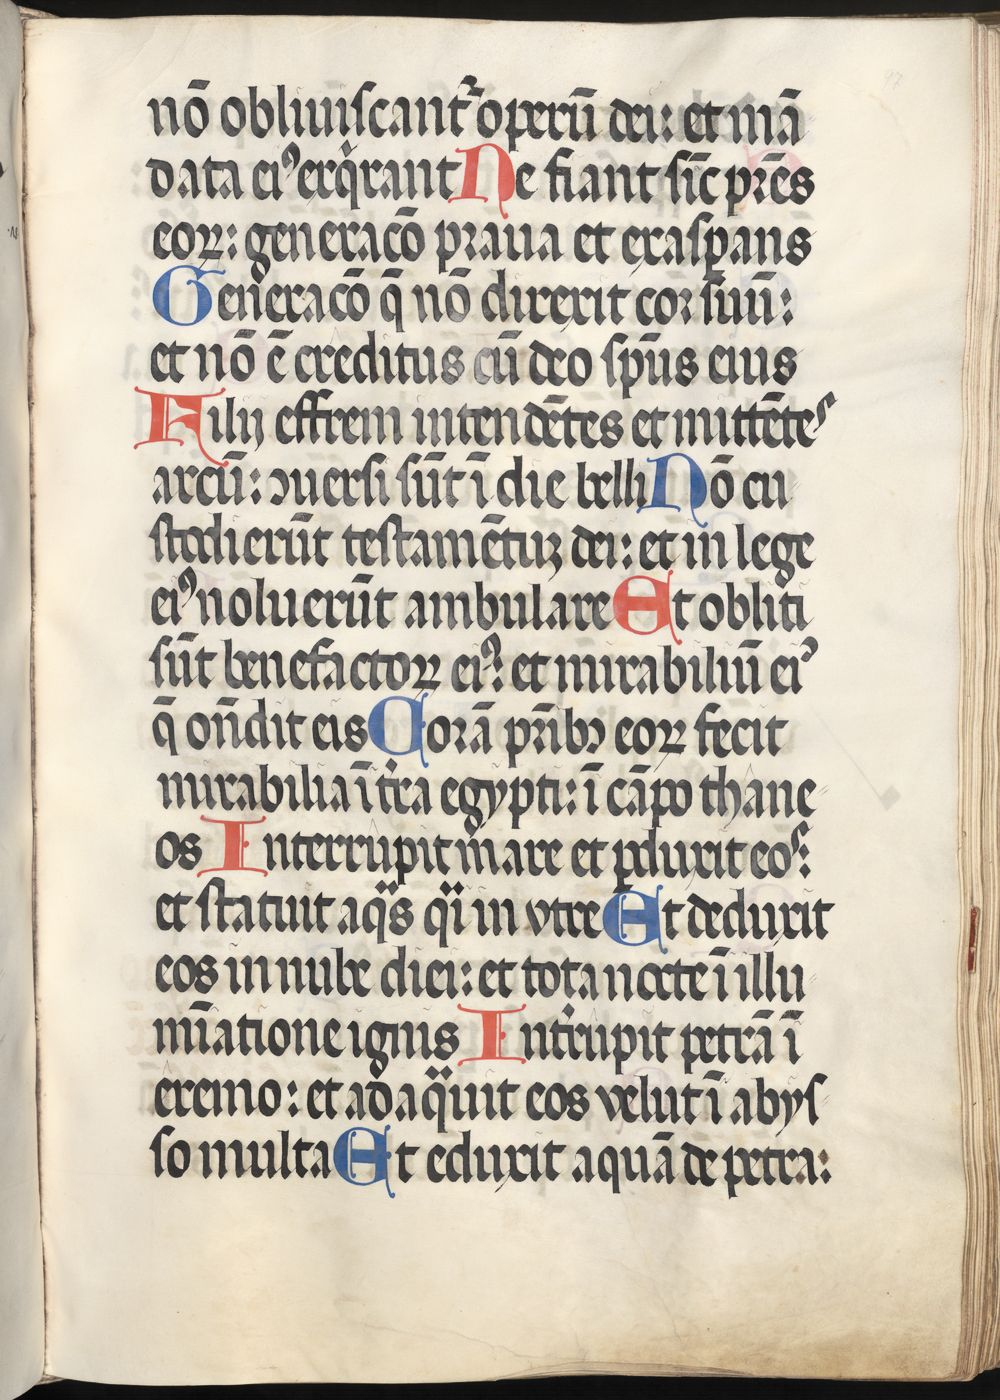 nō obliuiscantᷣ operū dei: et mā
data eiꝰ exq̇rant Ne fiant sic̄ pr̄es
eoꝝ: generac̄o praua et exaspans
Generac̄o q̄ nō direxit cor suū:
et nō ē creditus cū deo spūs eius
Filij effrem intendētes et mittētes
arcū: ꝯuersi sūt ī die belli Nō cu
stodierūt testamētuꝫ dei: et in lege
eiꝰ noluerūt ambulare Et obliti
sūt benefactoꝝ eiꝰ: et mirabiliū eiꝰ
q̄ on̄dit eis Corā pr̄ibꝫ eoꝝ fecit
mirabilia ī tr̄a egypti: ī cāpo thane
os Interrupit mare et ꝑduxit eos:
et statuit aqᷓs qᷓi in vtre Et deduxit
eos in nube diei: et tota nocte ī illu
mīatione ignis Intr̄upit petrā ī
eremo: et adaqᷓuit eos velut ī abys
so multa Et eduxit aquā de petra: